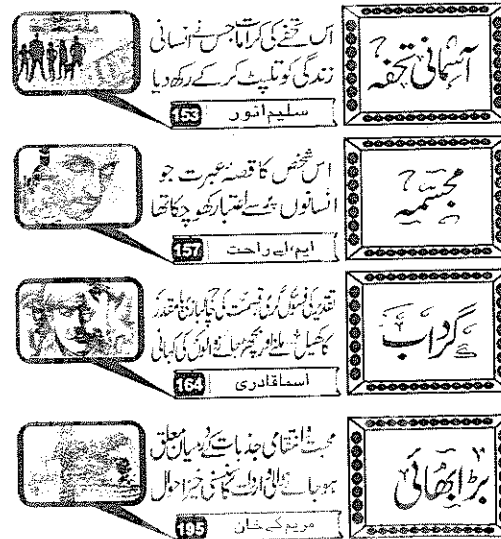 آسمانی تحفہ
اس تحفے کی کرامات جس نے انسانی
زندگی کو تلپٹ کر کے رکھ دیا
سلیم انور
153
مجسمہ
اس شخص کا قصۂ عبرت جو
انسانوں پر سے اعتبار کھو چکا تھا
ایم اے راحت
157
گرداب
تقدیر کی فسوں گری قسمت کی چالبازی یا مقدر
کا کھیل ملنے اور بچھڑ جانے والوں کی کہانی
اسما قادری
164
بڑا بھائی
محبت و انتقامی جذبات کے درمیان معلق
ہو جانے والی واردات کا سنسنی خیز احوال
مریم کے خان
195